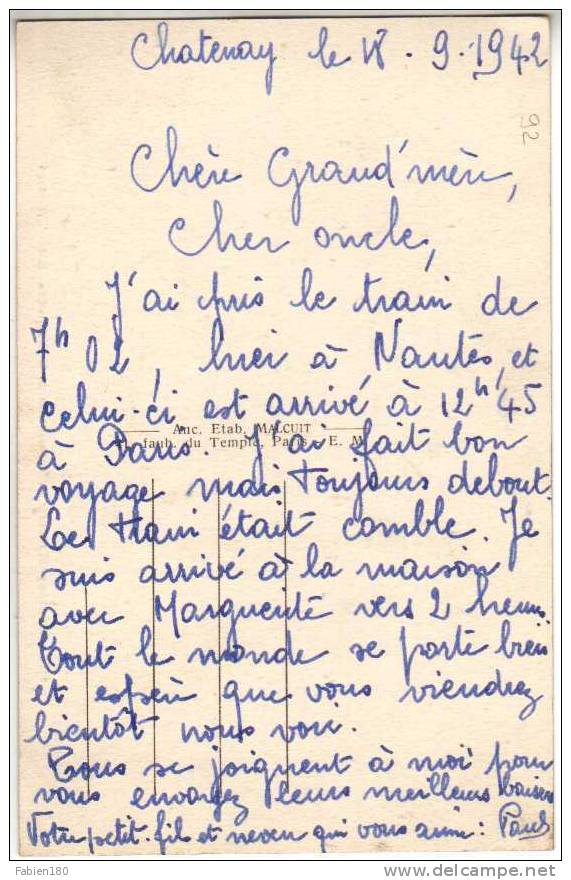 Chatenay le 18.9.1942
92
Chère Grand'mère,
Cher oncle,
J'ai pris le train de
7h02, hier à Nantes, et
celui-ci est arrivé à 12h45
Anc. Etab. MALCUIT
faub. du Temple, Paris. E. M.
à Paris. J'ai fait bon
voyage mais toujours debout.
Le train était comble. Je
suis arrivé à la maison
avec Marguerite vers 2 heures.
Tout le monde se porte bien
et espère que vous viendrez
bientôt nous voir.
Tous se joignent à moi pour
vous envoyez leurs meilleurs baisers
Votre petit-fils et neveu qui vous aime : Paul
Fabien180
www.delcampe.net